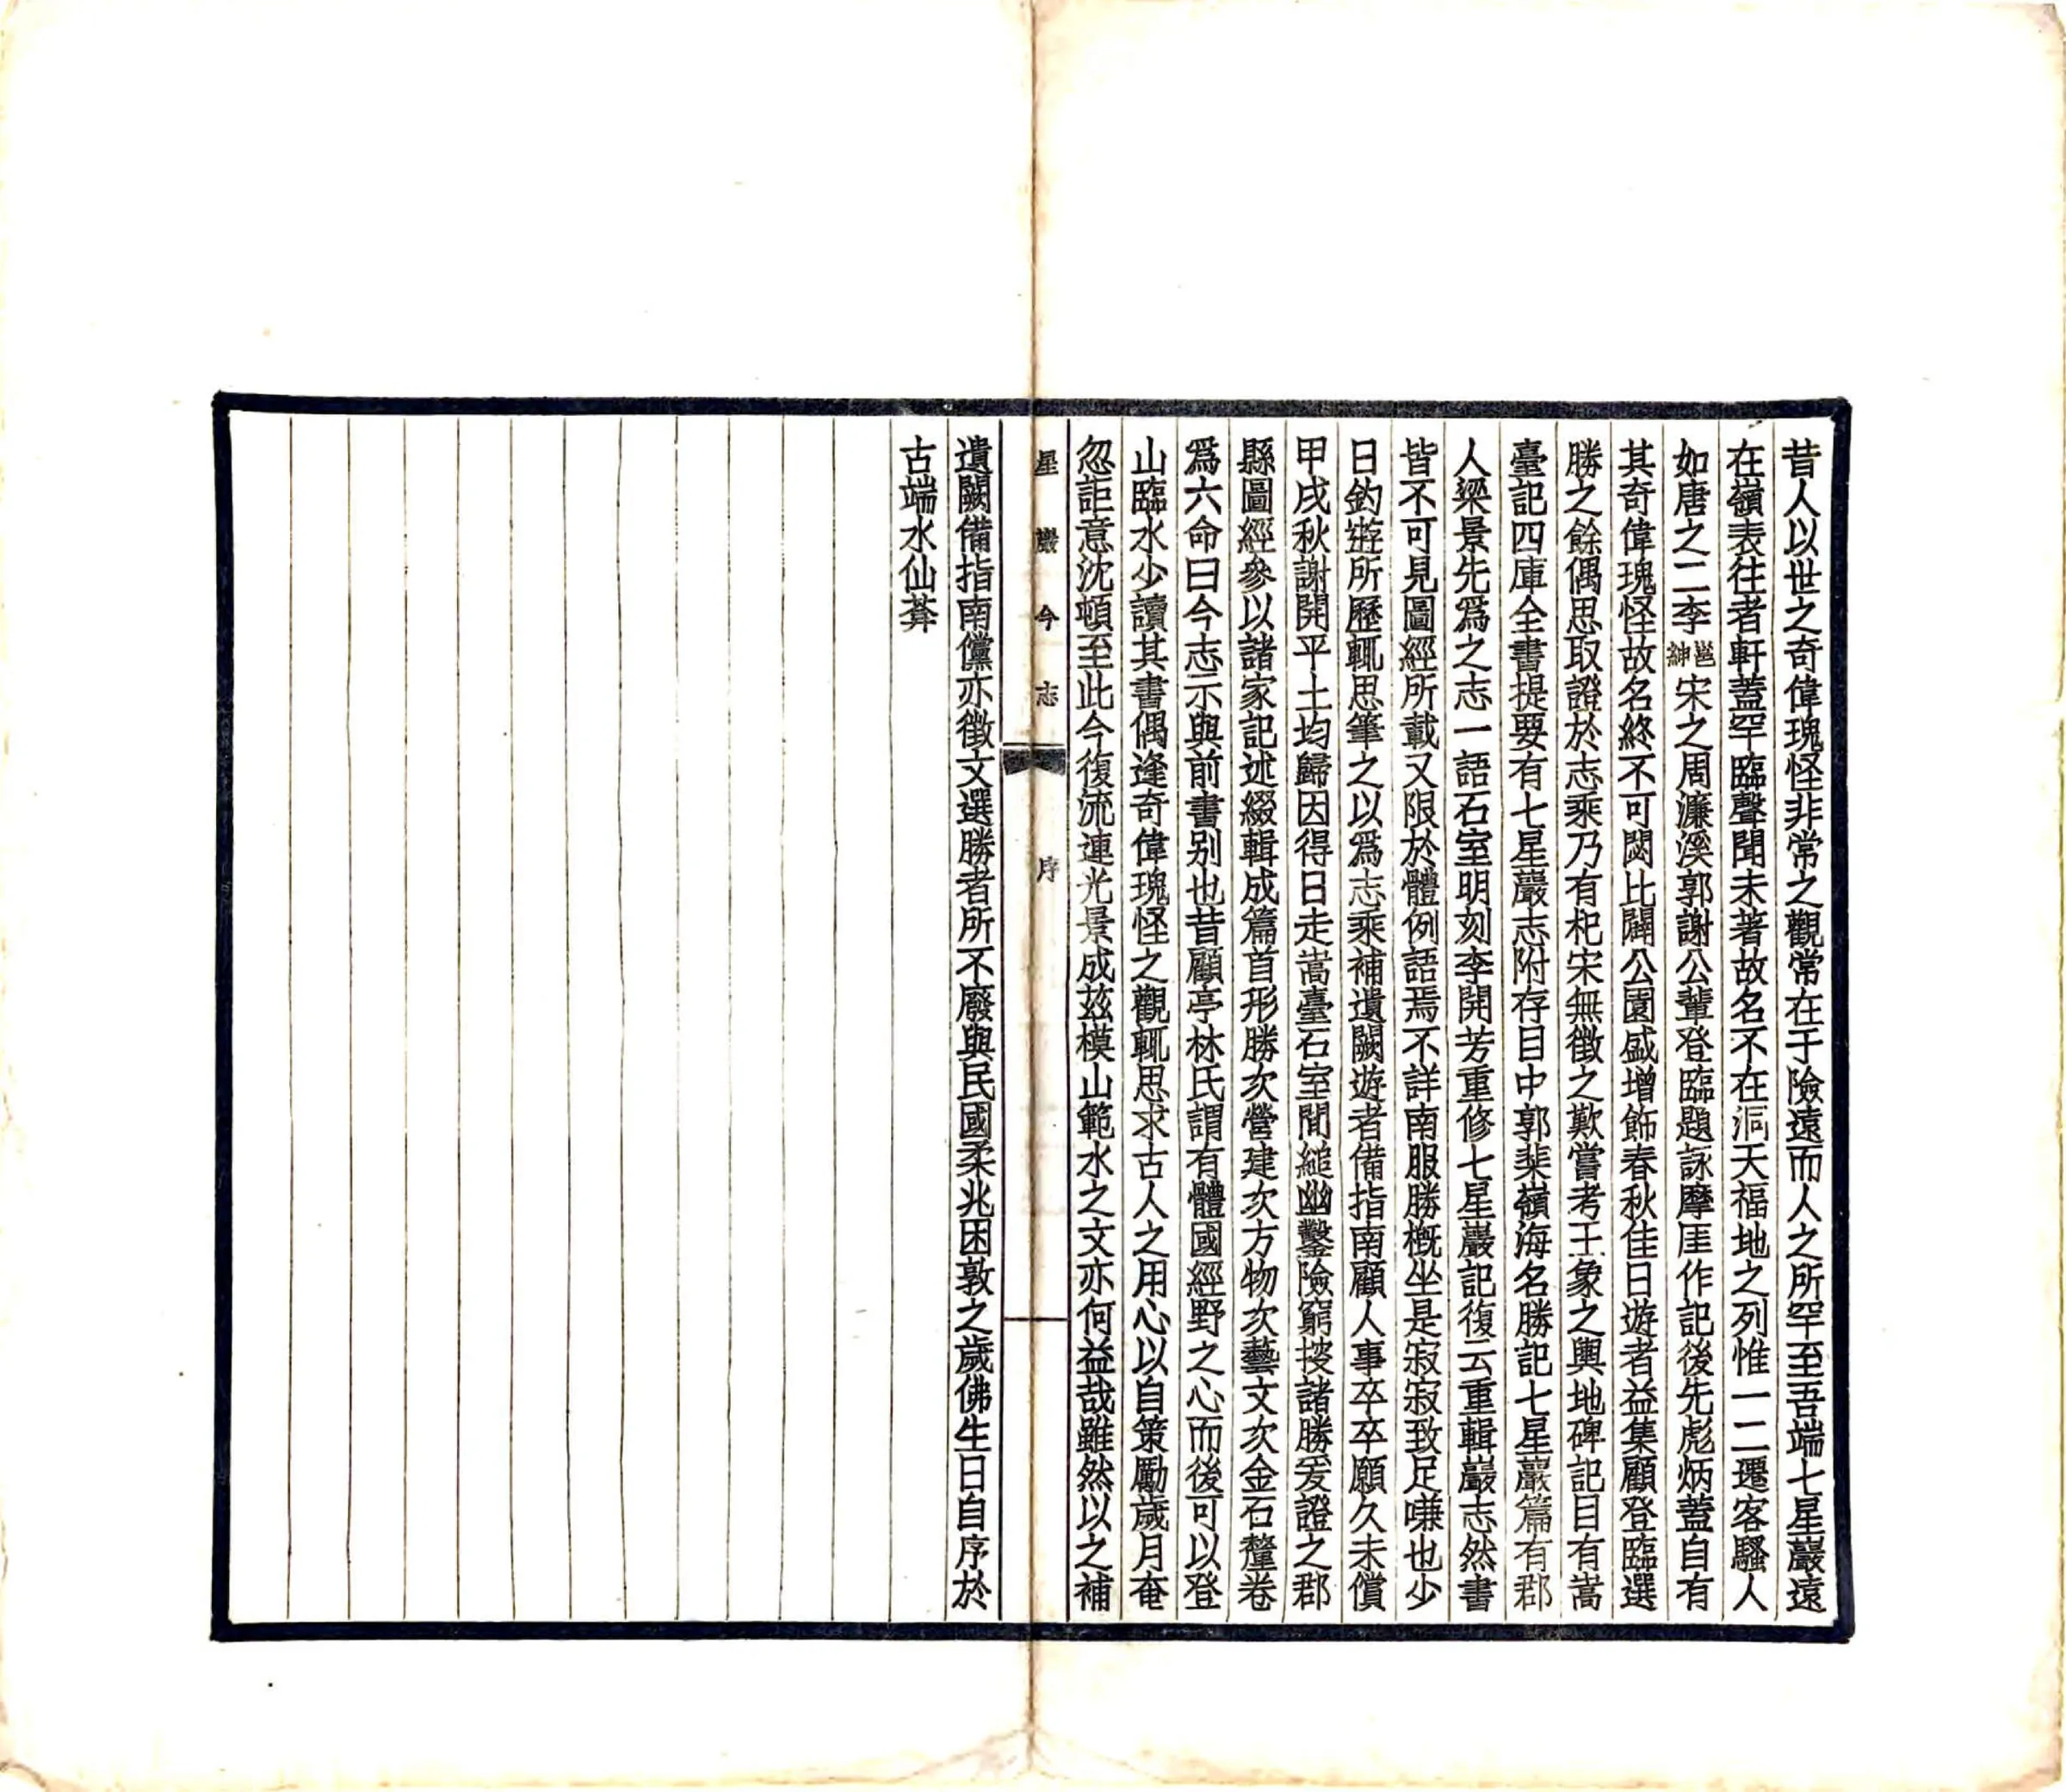 昔人以世之奇偉瑰怪非常之觀常在于險遠而人之所罕至吾端七星巖遠
在嶺表往者軒蓋罕臨聲聞未著故名不在洞天福地之列惟一二遷客騷人
如唐之二李邕紳宋之周濂溪郭謝公輩登臨題詠摩厓作記後先彪炳蓋自有
其奇偉瑰怪故名終不可閟比闢公園盛增飾春秋佳日遊者益集顧登臨選
勝之餘偶思取證於志乘乃有杞宋無徵之歎嘗考王象之輿地碑記目有嵩
臺記四庫全書提要有七星巖志附存目中郭棐嶺海名勝記七星巖篇有郡
人梁景先爲之志一語石室明刻李開芳重修七星巖記復云重輯巖志然書
皆不可見圖經所載又限於體例語焉不詳南服勝槪坐是寂寂致足嗛也少
日釣遊所歷輒思筆之以爲志乘補遺闕遊者備指南顧人事卒卒願久未償
甲戌秋謝開平土均歸因得日走嵩臺石室間縋幽鑿險窮搜諸勝爰證之郡
縣圖經參以諸家記述綴輯成篇首形勝次營建次方物次藝文次金石釐卷
爲六命曰今志示與前書别也昔顧亭林氏謂有體國經野之心而後可以登
山臨水少讀其書偶逢奇偉瑰怪之觀輒思求古人之用心以自策勵歲月奄
忽詎意沈頓至此今復流連光景成玆模山範水之文亦何益哉雖然以之補
星巖今志
序
遺闕備指南儻亦徵文選勝者所不廢與民國柔兆困敦之歲佛生日自序於
古端水仙葊